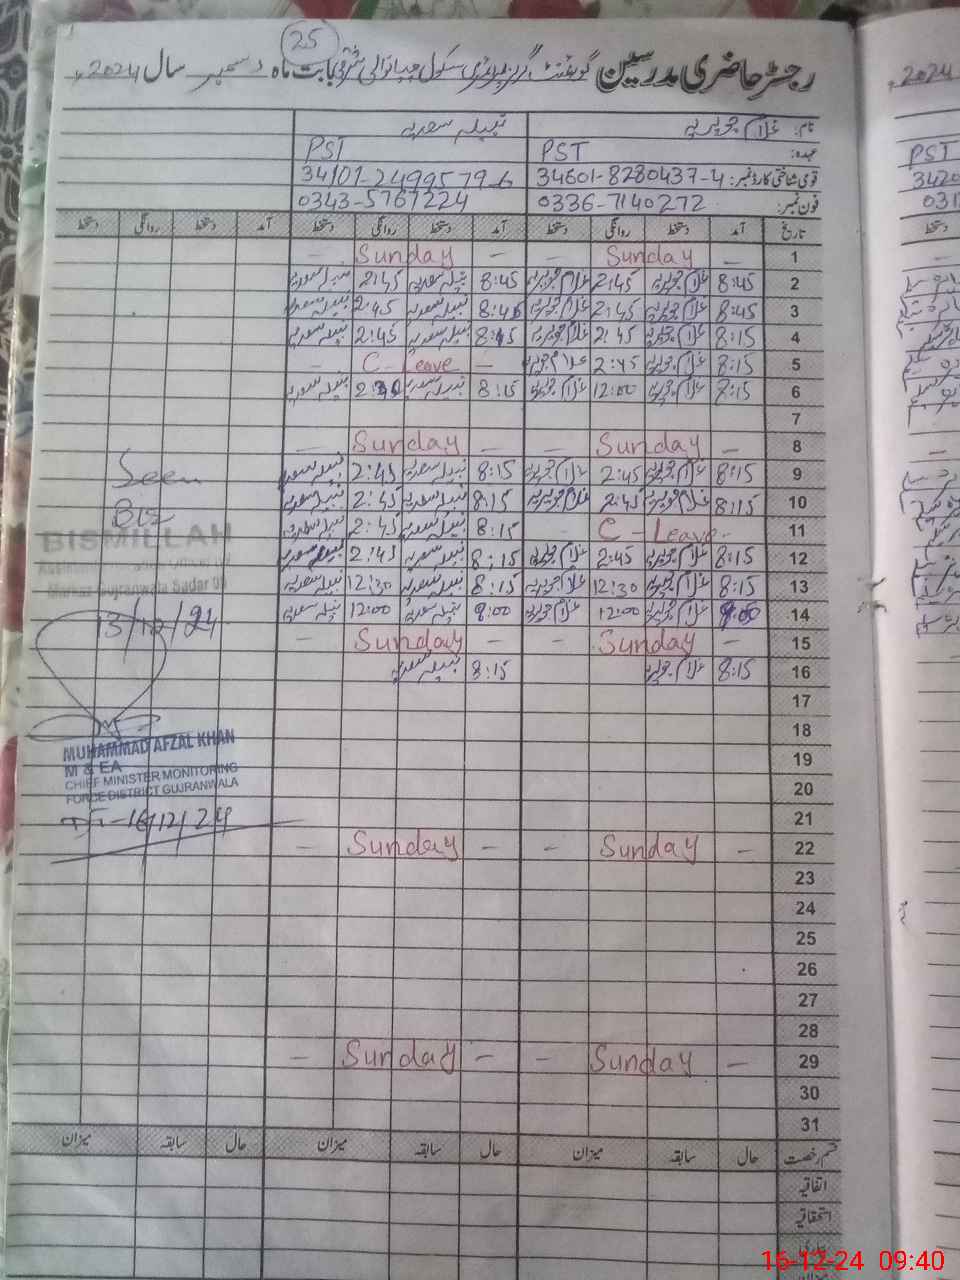 25
رجسٹر حاضری مدرسین گورنمنٹ گرلز پرائمری سکول بابت ماہ دسمبر سال 2024ء
نام: غلام جویریہ نبیلہ سعدیہ
عہدہ: PST PST
قومی شناختی کارڈ نمبر: 34601-8280437-4 34101-2499579-6
فون نمبر: 0336-7140272 0343-5767224
تاریخ آمد دستخط روانگی دستخط آمد دستخط روانگی دستخط آمد دستخط روانگی دستخط
1 – Sunday – – Sunday –
2 8:45 غلام جویریہ 2:45 غلام جویریہ 8:45 نبیلہ سعدیہ 2:45 نبیلہ سعدیہ
3 8:45 غلام جویریہ 2:45 غلام جویریہ 8:45 نبیلہ سعدیہ 2:45 نبیلہ سعدیہ
4 8:15 غلام جویریہ 2:45 غلام جویریہ 8:15 نبیلہ سعدیہ 2:45 نبیلہ سعدیہ
5 8:15 غلام جویریہ 2:45 غلام جویریہ – C-Leave –
6 8:15 غلام جویریہ 12:00 غلام جویریہ 8:15 نبیلہ سعدیہ نبیلہ سعدیہ
7
8 – Sunday – – Sunday –
9 8:15 غلام جویریہ 2:45 غلام جویریہ 8:15 نبیلہ سعدیہ 2:45 نبیلہ سعدیہ
10 8:15 غلام جویریہ 2:45 غلام جویریہ 8:15 نبیلہ سعدیہ 2:45 نبیلہ سعدیہ
11 C-Leave – 8:15 نبیلہ سعدیہ 2:45 نبیلہ سعدیہ
12 8:15 غلام جویریہ 2:45 غلام جویریہ 8:15 نبیلہ سعدیہ 2:45 نبیلہ سعدیہ
13 8:15 غلام جویریہ 12:30 غلام جویریہ 8:15 نبیلہ سعدیہ 12:30 نبیلہ سعدیہ
14 9:00 غلام جویریہ 12:00 غلام جویریہ 9:00 نبیلہ سعدیہ 12:00 نبیلہ سعدیہ
15 – Sunday – – Sunday –
16 8:15 غلام جویریہ 8:15 نبیلہ سعدیہ
17
18
19
20
21
22 – Sunday – – Sunday –
23
24
25
26
27
28
29 – Sunday – – Sunday –
30
31
قسم رخصت حال سابقہ میزان حال سابقہ میزان حال سابقہ میزان
اتفاقیہ
استحقاقیہ
Seen
BISMILLAH
Markaz Gujranwala Sadar
13/12/24
MUHAMMAD AFZAL KHAN
M & EA
CHIEF MINISTER MONITORING
FORCE DISTRICT GUJRANWALA
16/12/24
2024ء
PST
16-12-24 09:40